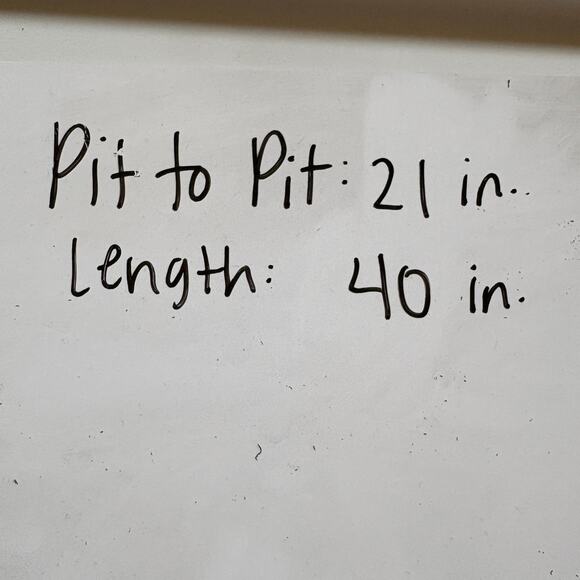 Pit to Pit: 21 in.
Length: 40 in.